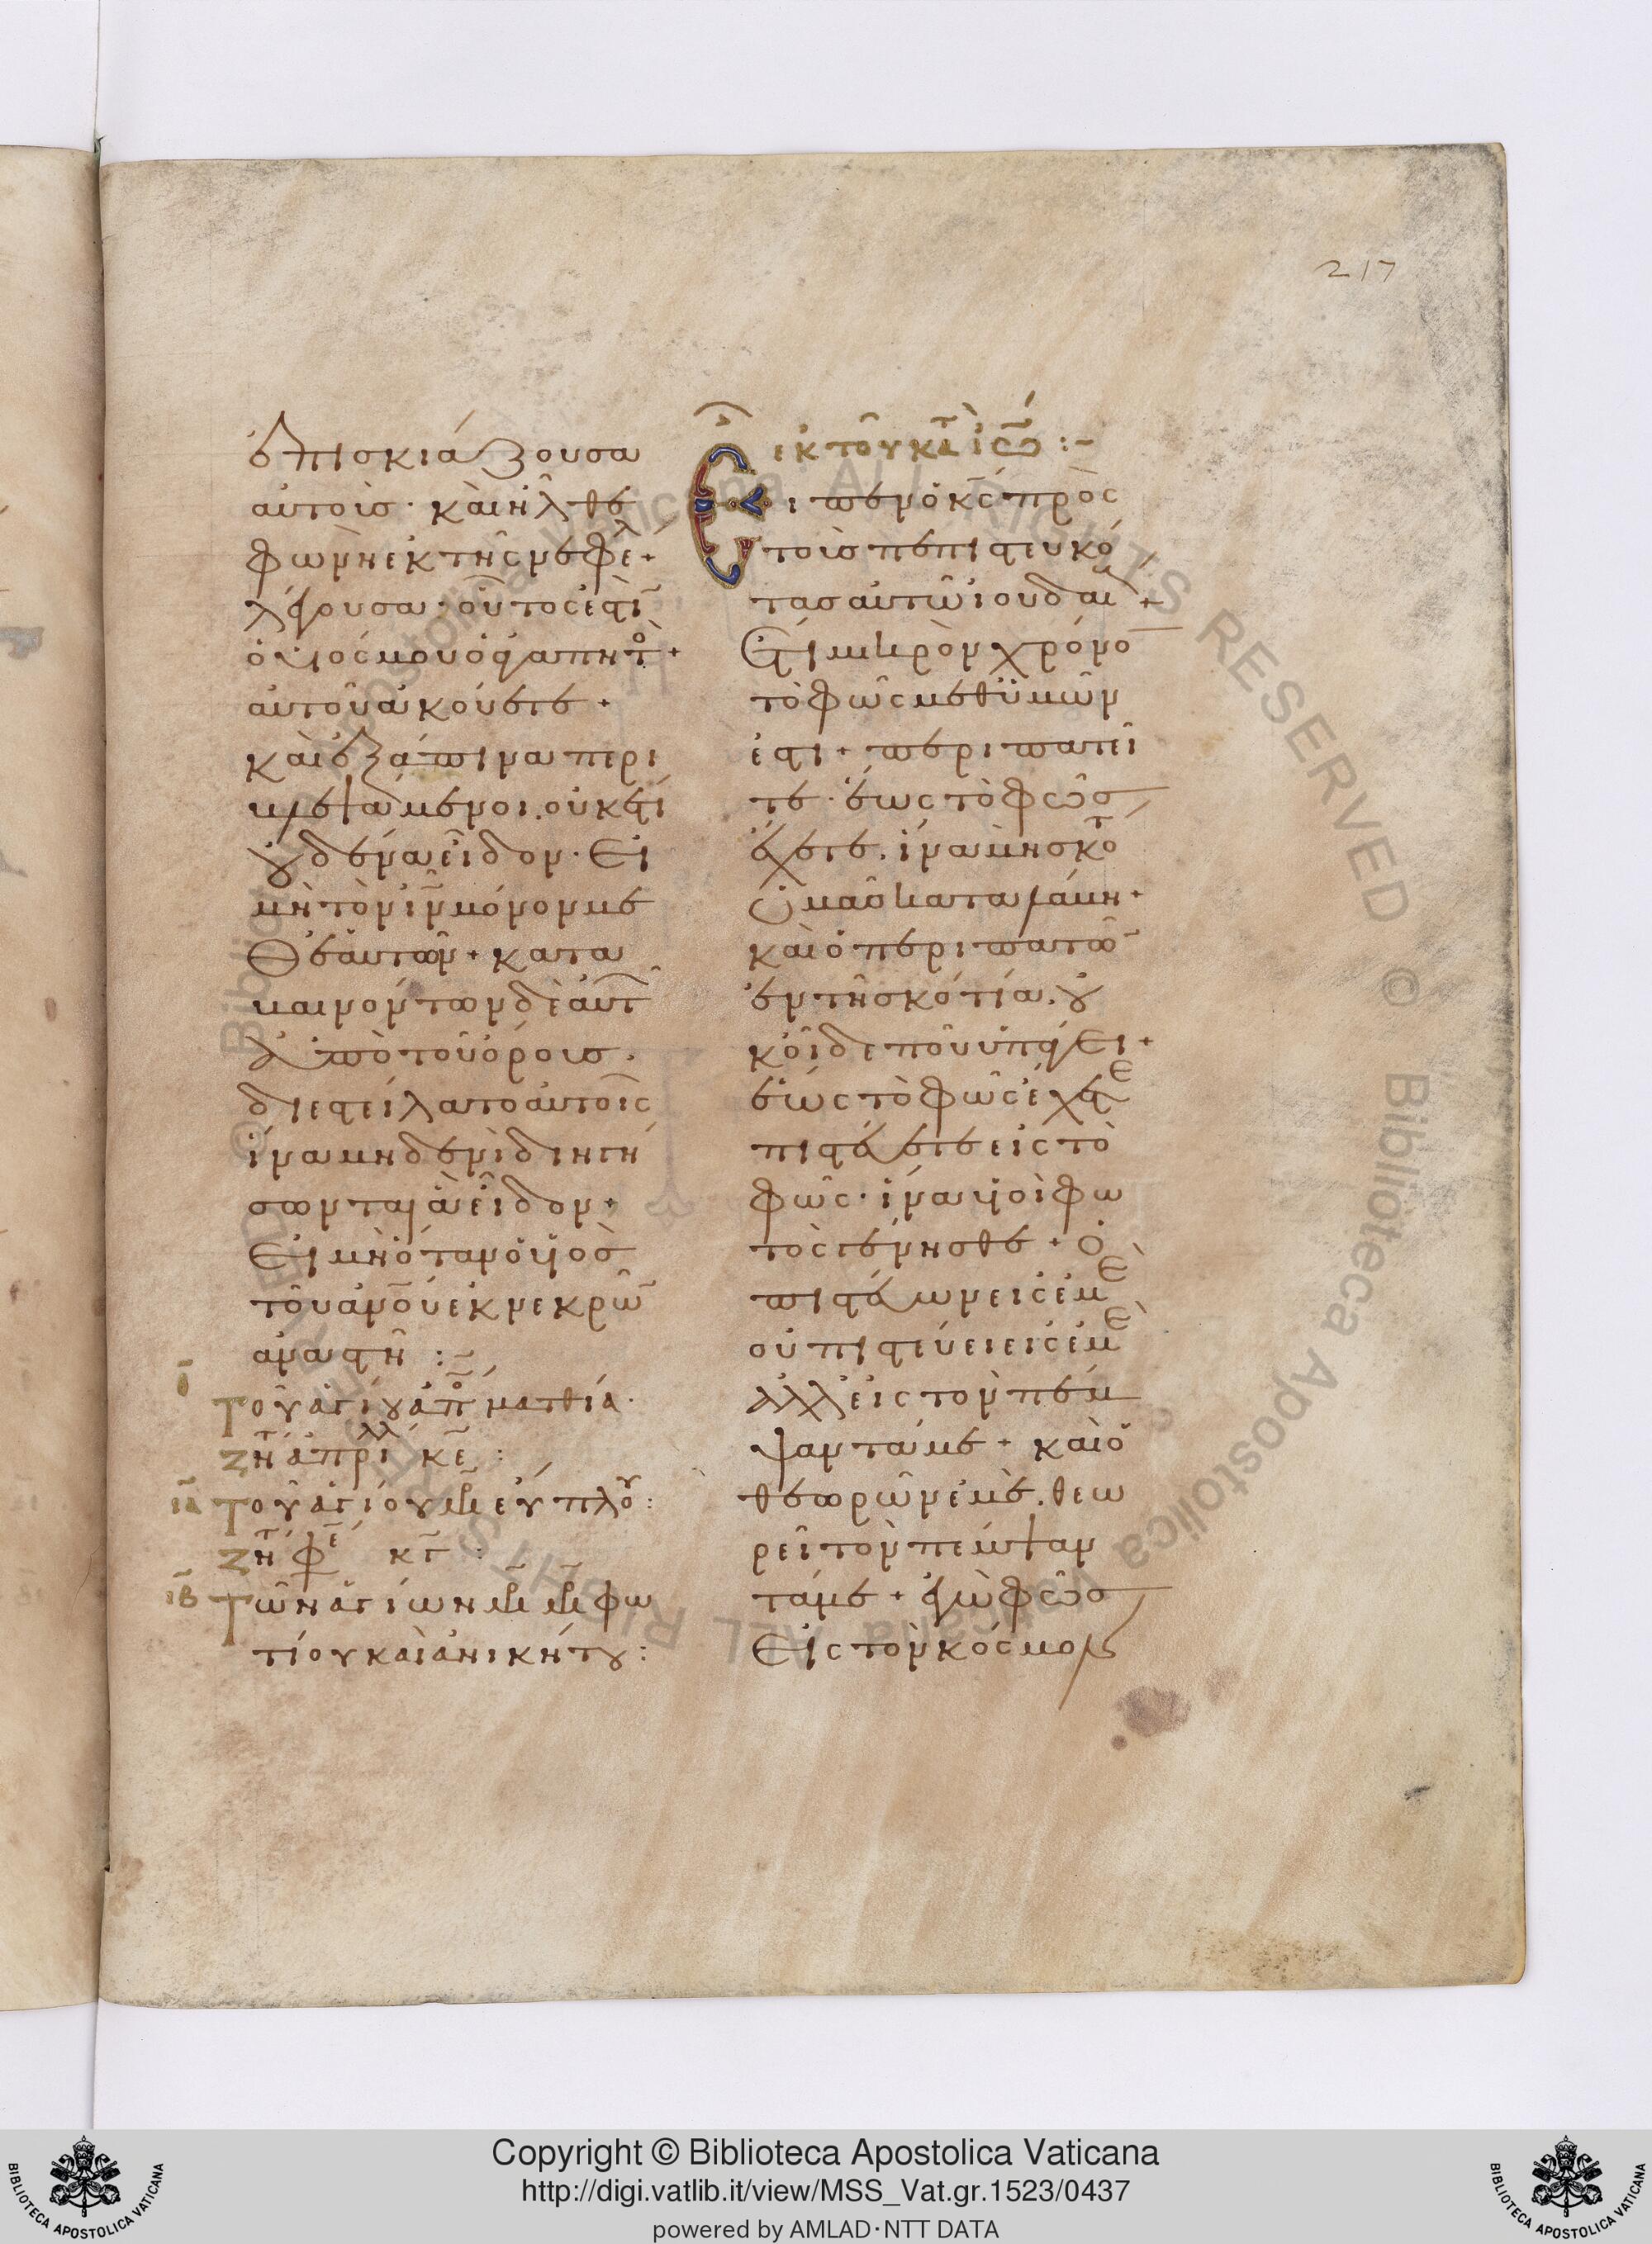 217
ἐπισκιάζουσα
αὐτοῖσ· καὶ ἦλθε
φωνὴ ἐκ τῆς νεφέλ+
λέγουσα· οὗτος ἐστὶ̄
ὁ υἱός μου ὁ ἀγαπητ+
αὐτοῦ ἀκούετε+
καὶ ἐξάπινα περι
βλεψάμενοι. οὐκέτι
οὐδένα εἶδον· Εἰ
μὴ τὸν ιν̄ μόνον με
θ' ἑαυτῶν+ κατα
βαινόντων δὲ αὐτ
ἀπὸ τοῦ ὄρουσ·
διεστείλατο αὐτοῖς
ἵνα μηδενὶ διηγή
σωνται ἃ εἶδον+
Εἰ μὴ ὅταν ὁ υἱὸσ
τοῦ ἀνο̄υ ἐκ νεκρῶ̄
ἀναστῆ :~
ῑ
Τοῦ ἁγίου ἀπο ματθία·
ζητ ἀπριλλ κε̄ :
ιᾱ Τοῦ ἁγίου μρ εὔπλου:
ζητ φε κγ̄ :
ιβ̄ Τῶν ἁγίων μρ μρ φω
τίου καὶ ἀνικήτου:
ἐκ τοῦ κατ ἰω :~
Εἶπεν ὁ κς̄ πρὸς
τοὺσ πεπιστευκό
τασ αὐτῶ ἰουδαι+
Ἔτι μικρὸν χρόνο̄
τὸ φῶς μεθ ϋμῶν
ἐστι+ περιπατεῖ
τε· ἕως τὸ φῶσ
ἔχετε. ἵνα μὴ σκοτ
ὑμᾶσ καταλάβη+
καὶ ὁ περιπατῶ̄
ἐν τῆ σκοτία. οὐ
κ οἶδε ποῦ ὑπάγει+
ἕως τὸ φῶς ἔχετε
πιστεύετε εἰς τὸ
φῶς· ἵνα υἱοὶ φω
τὸς γένησθε+ ὁ
πιστεύων εἰς ἐμὲ
οὐ πιστεύει εἰς ἐμὲ
ἀλλ' εἰς τὸν πέμ
ψαντά με+ καὶ ὁ
θεωρῶν ἐμὲ. θεω
ρεῖ τὸν πέμψαν
τά με+ ἐγὼ φῶσ
Εἰς τὸν κόσμον
Copyright © Biblioteca Apostolica Vaticana
http://digi.vatlib.it/view/MSS_Vat.gr.1523/0437
powered by AMLAD·NTT DATA
BIBLIOTECA APOSTOLICA VATICANA
BIBLIOTECA APOSTOLICA VATICANA